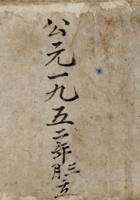 公元一九五二年三月立